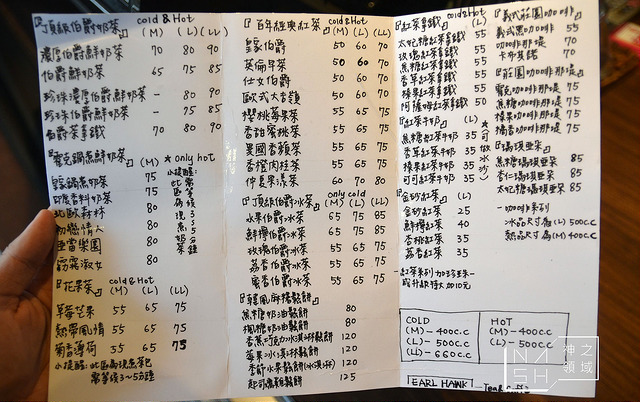 『頂級伯爵奶茶』 cold & Hot
(M) (L) (LL)
濃厚伯爵鮮奶茶 70 80 90
伯爵鮮奶茶 65 75 85
珍珠濃厚伯爵鮮奶茶 - 80 90
珍珠伯爵鮮奶茶 - 75 85
伯爵茶拿鐵 70 80 90
『蜜克鍋煮鮮奶茶』 (M) ★ only hot
皇家鍋煮奶茶 75
印度香料奶茶 75
北歐森林 80
初戀情人 80
亞當樂園 80
窈窕淑女 80
小提醒:此需區等候現煮3~5分鐘
『花果茶』 cold & Hot
(M) (L) (LL)
草莓芒果 55 65 75
熱帶風情 55 65 75
菊香薄荷 55 65 75
小提醒:此區為現煮茶包
需等候3~5分鐘
『百年經典紅茶』 cold & Hot
(M) (L) (LL)
皇家伯爵 50 60 70
英倫早茶 50 60 70
仕女伯爵 50 60 70
歐式大吉嶺 50 60 70
櫻桃莓果茶 55 65 75
香甜蜜桃茶 55 65 75
異國香頌茶 55 65 75
香橙肉桂茶 55 65 75
仲夏果漾茶 60 70 80
『頂級伯爵冰茶』 only cold
(M) (L) (LL)
水果伯爵冰茶 65 75 85
鮮檸伯爵冰茶 65 75 85
玫瑰伯爵冰茶 55 65 75
荔香伯爵冰茶 55 65 75
蜜香伯爵冰茶 55 65 75
『韓風麻糬鬆餅』
焦糖奶油鬆餅 80
楓糖奶油鬆餅 80
香蕉巧克力冰淇淋鬆餅 120
莓果冰淇淋鬆餅 120
季節水果鬆餅(冰淇淋) 120
起司燻雞鬆餅 125
『紅茶拿鐵』 cold & Hot (L)
太妃糖紅茶拿鐵 55
玫瑰紅茶拿鐵 55
焦糖紅茶拿鐵 55
香草紅茶拿鐵 55
榛果紅茶拿鐵 55
阿薩姆紅茶拿鐵 50
『紅茶牛奶』 (L)
焦糖紅茶牛奶 35
香草紅茶牛奶 35
榛果紅茶牛奶 35
可可紅茶牛奶 35
★(可做冰沙)
『金砂紅茶』 (L)
金砂紅茶 25
鮮檸紅茶 40
杏桃紅茶 35
荔香紅茶 35
-紅茶系列加珍珠-
或升級特大加10元
『義式莊園咖啡』
義式黑咖啡 55
咖啡那堤 70
卡布其諾 70
『莊園咖啡那堤』
蜜克咖啡那堤 75
焦糖咖啡那堤 75
榛果咖啡那堤 75
橘香咖啡那堤 75
『瑪琪亞朵』
焦糖瑪琪亞朵 85
杏仁瑪琪亞朵 85
太妃糖瑪琪亞朵 85
-咖啡系列
冰品尺寸為(L) 500c.c
熱品尺寸為(M) 400c.c
COLD
(M)-400c.c
(L)-500c.c
(LL)-660c.c
HOT
(M)-400c.c
(L)-500c.c
EARL HAWK - Tea & Caffe
NASH 神之領域